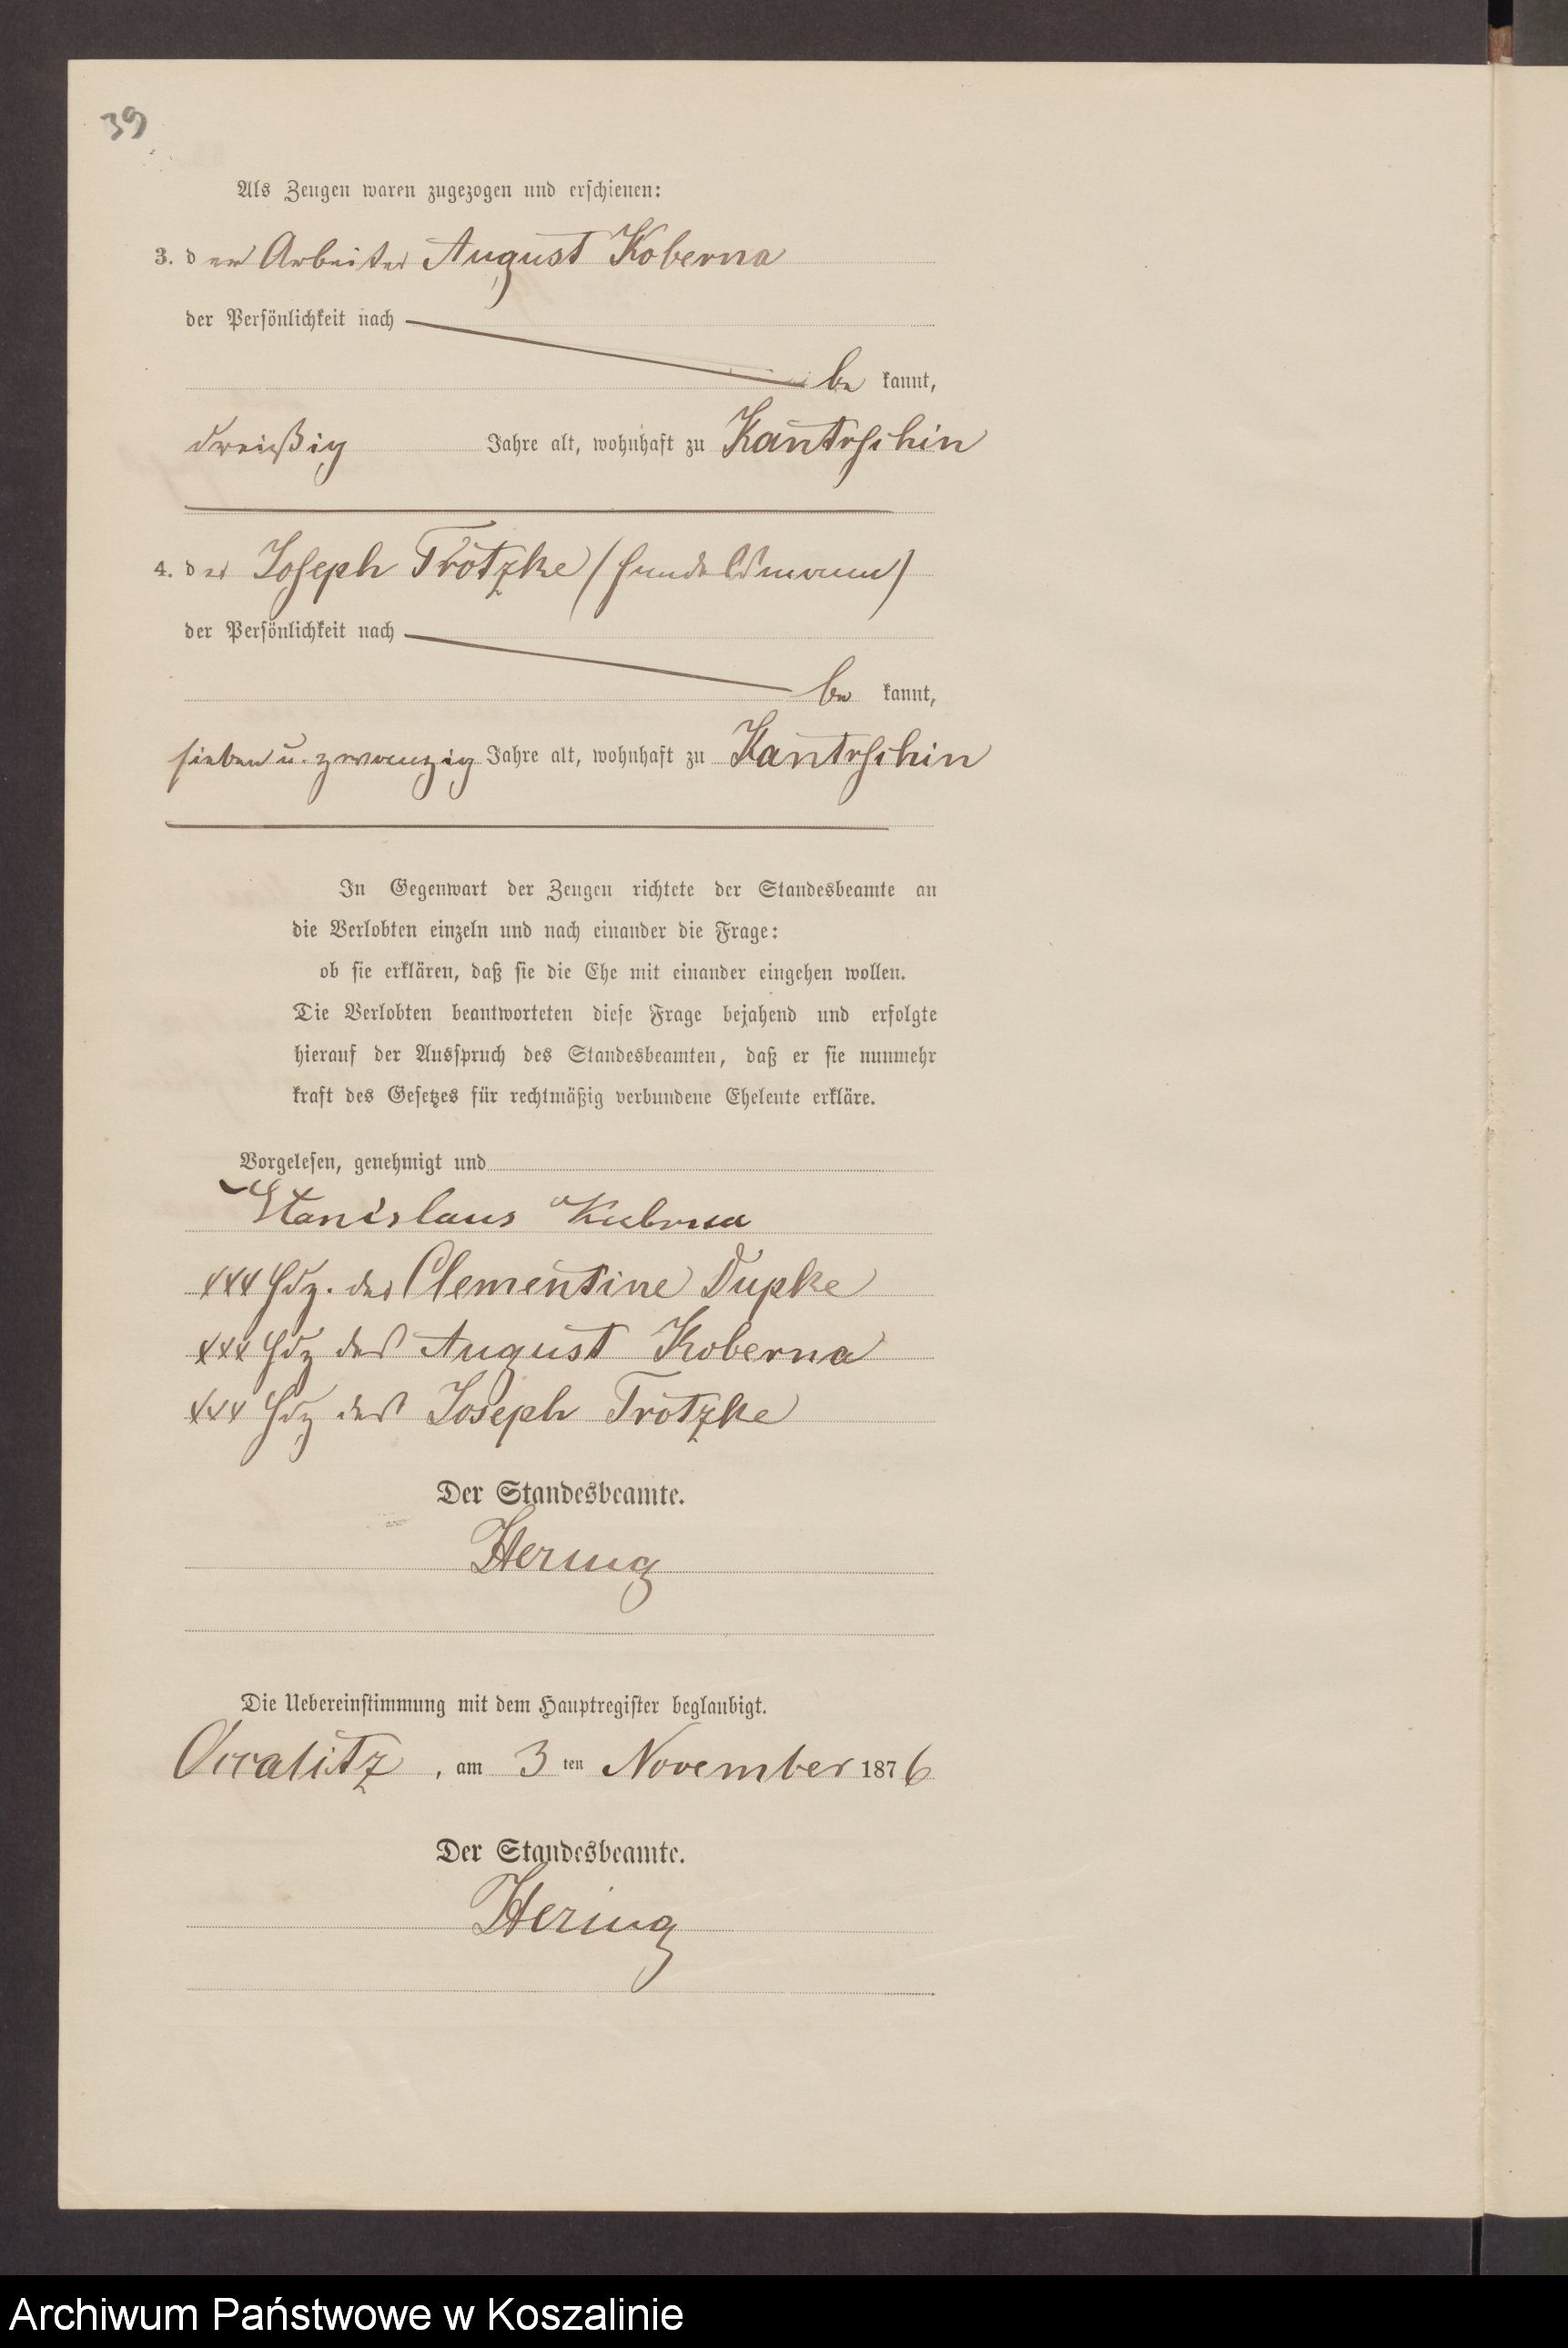 39
Als Zeugen waren zugezogen und erschienen:
3. der Arbeiter August Koberna
der Persönlichkeit nach
be kannt,
dreißig Jahre alt, wohnhaft zu Kantrschin
4. der Joseph Trotzke (Handelsmann)
der Persönlichkeit nach
be kannt,
sieben u. zwanzig Jahre alt, wohnhaft zu Kantrschin
In Gegenwart der Zeugen richtete der Standesbeamte an
die Verlobten einzeln und nach einander die Frage:
ob sie erklären, daß sie die Ehe mit einander eingehen wollen.
Die Verlobten beantworteten diese Frage bejahend und erfolgte
hierauf der Ausspruch des Standesbeamten, daß er sie nunmehr
kraft des Gesetzes für rechtmäßig verbundene Eheleute erkläre.
Vorgelesen, genehmigt und
Stanislaus
xxx Hdz. der Clementine Dupke
xxx Hdz des August Koberna
xxx Hdz des Joseph Trotzke
Der Standesbeamte.
Hering
Die Uebereinstimmung mit dem Hauptregister beglaubigt.
Occalitz, am 3 ten November 1876
Der Standesbeamte.
Hering
Archiwum Państwowe w Koszalinie